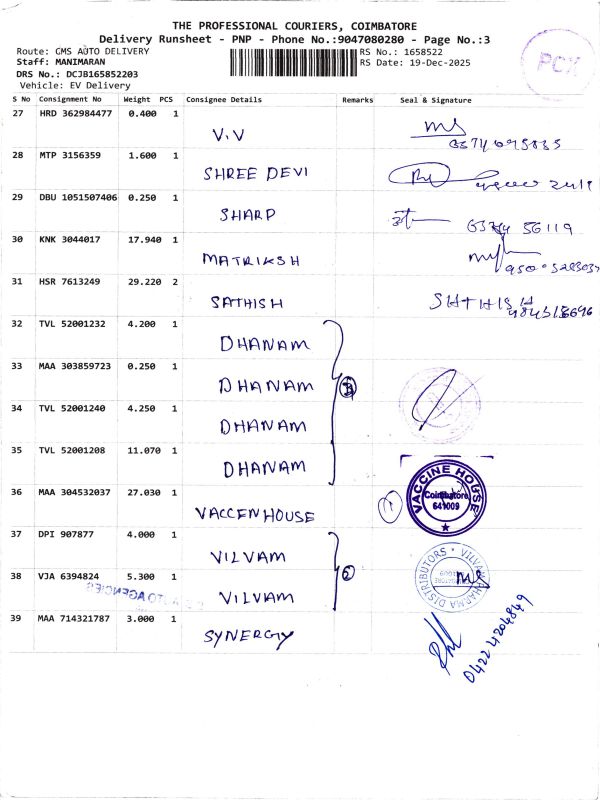 THE PROFESSIONAL COURIERS, COIMBATORE
Delivery Runsheet - PNP - Phone No.:9047080280 - Page No.:3
Route: GMS AUTO DELIVERY
RS No.: 1658522
Staff: MANIMARAN
RS Date: 19-Dec-2025
DRS No.: DCJB165852203
Vehicle: EV Delivery
PCX
S No Consignment No Weight PCS Consignee Details Remarks Seal & Signature
27 HRD 362984477 0.400 1
V.V
28 MTP 3156359 1.600 1
SHREE DEVI
29 DBU 1051507406 0.250 1
SHARP
30 KNK 3044017 17.940 1
MATRIKSH
31 HSR 7613249 29.220 2
SATHISH SHTHISH
32 TVL 52001232 4.200 1
DHANAM
33 MAA 303859723 0.250 1
DHANAM
34 TVL 52001240 4.250 1
DHANAM
35 TVL 52001208 11.070 1
DHANAM
36 MAA 304532037 27.030 1
VACCENHOUSE
VACCINE HOUSE
Coimbatore
641009
37 DPI 907877 4.000 1
VILVAM 2
38 VJA 6394824 5.300 1
VILVAM
VILVAM PHARMA DISTRIBUTORS
39 MAA 714321787 3.000 1
SYNERGY
0422 4204849